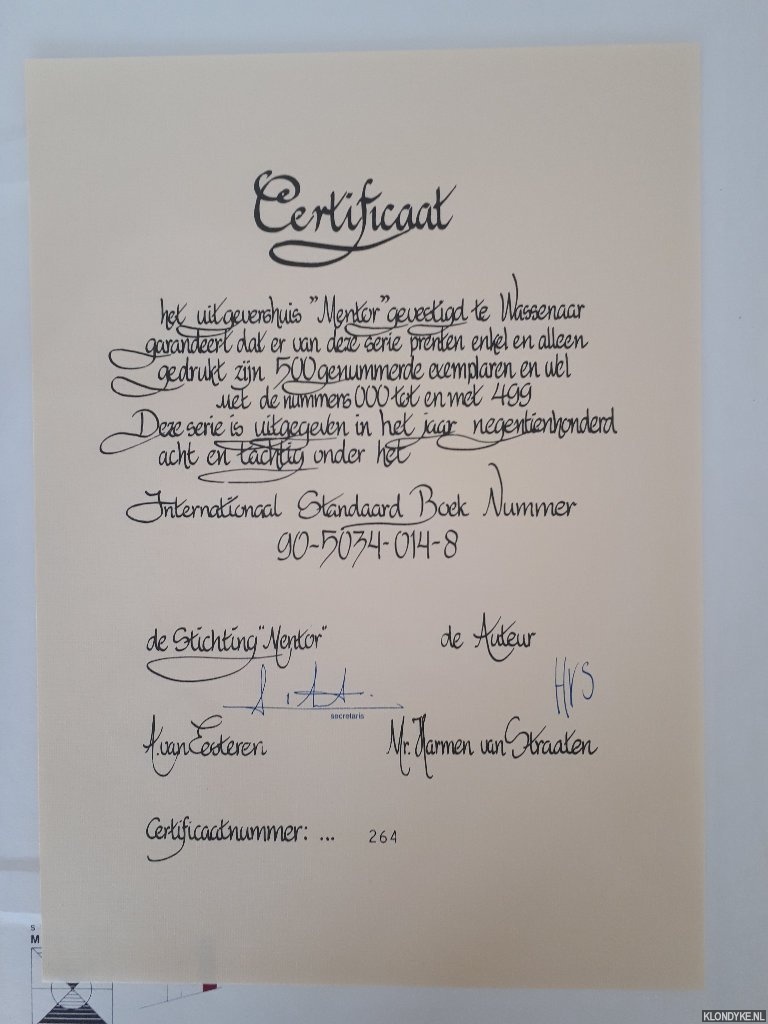 Certificaat
het uitgevershuis "Mentor" gevestigd te Wassenaar
garandeert dat er van deze serie prenten enkel en alleen
gedrukt zijn 500 genummerde exemplaren en wel
met de nummers 000 tot en met 499
Deze serie is uitgegeven in het jaar negentienhonderd
acht en tachtig onder het
Internationaal Standaard Boek Nummer
90-5034-014-8
de Stichting "Mentor"
de Auteur
HvS
secretaris
A. van Eesteren
Mr. Harmen van Straaten
Certificaatnummer: ... 264
S
M
KLONDYKE.NL